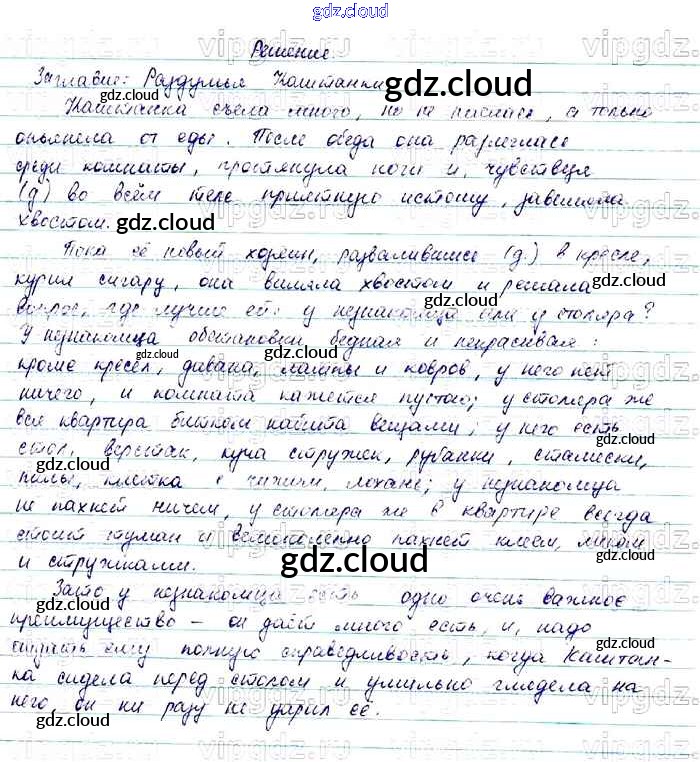 gdz.cloud
Решение.
Заглавие: Раздумья Каштанки
Каштанка съела много, но не наелась, а только
опьянела от еды. После обеда она разлеглась
среди комнаты, протянула ноги и, чувствуя
(д) во всём теле приятную истому, завиляла
хвостом.
Пока её новый хозяин, развалившись (д.) в кресле,
курил сигару, она виляла хвостом и решала
вопрос, где лучше ей: у незнакомца или у столяра?
У незнакомца обстановка бедная и некрасивая:
кроме кресел, дивана, лампы и ковров, у него нет
ничего, и комната кажется пустою; у столяра же
вся квартира битком набита вещами; у него есть
стол, верстак, куча стружек, рубанки, стамески,
пилы, клетка с чижом, лохань; у незнакомца
не пахнет ничем, у столяра же в квартире всегда
стоит туман и великолепно пахнет клеем, лаком
и стружками.
Зато у незнакомца есть одно очень важное
преимущество – он даёт много есть, и, надо
отдать ему полную справедливость, когда Каштан-
ка сидела перед столом и умильно глядела на
него, он ни разу не ударил её.